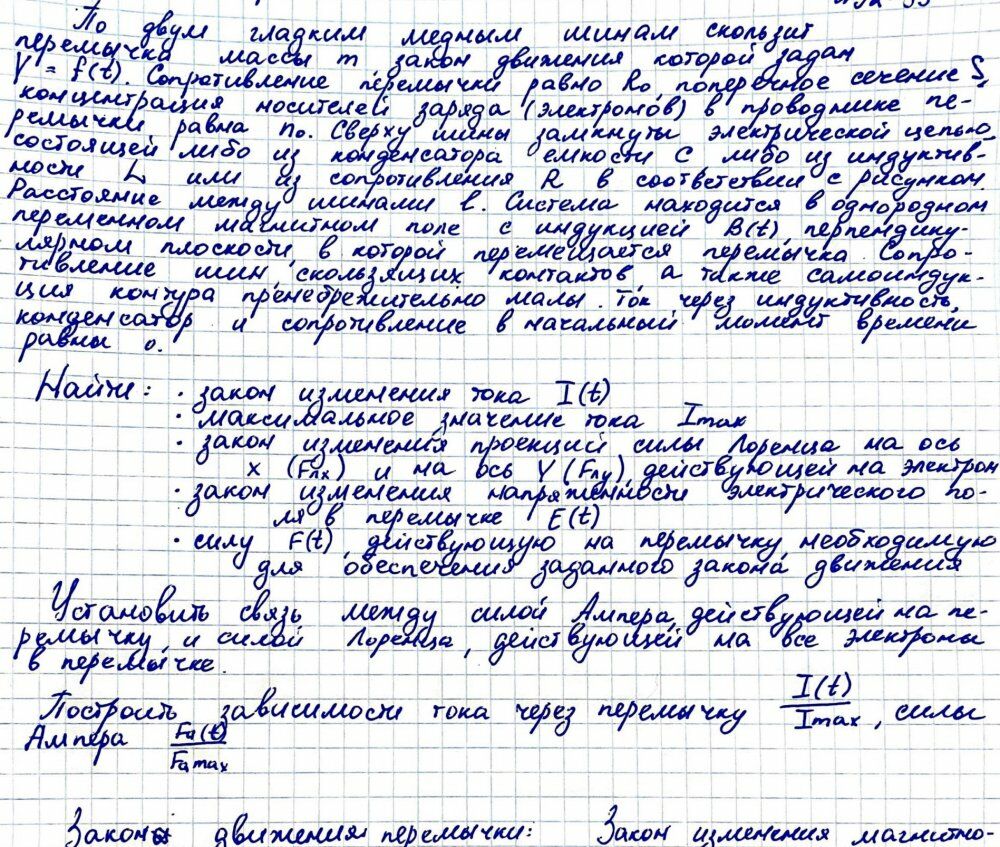 По двум гладким медным шинам скользит
перемычка массы m закон движения которой задан
Y = f(t). Сопротивление перемычки равно R₀, поперечное сечение S,
концентрация носителей заряда (электронов) в проводнике пе-
ремычки равна n₀. Сверху шины замкнуты электрической цепью,
состоящей либо из конденсатора емкости C либо из индуктив-
ности L или из сопротивления R в соответствии с рисунком.
Расстояние между шинами l. Система находится в однородном
переменном магнитном поле с индукцией B(t), перпендику-
лярном плоскости, в которой перемещается перемычка. Сопро-
тивление шин, скользящих контактов, а также самоиндук-
ция контура пренебрежительно малы. Ток через индуктивность,
конденсатор и сопротивление в начальный момент времени
равны 0.
Найти: · закон изменения тока I(t)
· максимальное значение тока Imax
· закон изменения проекций силы Лоренца на ось
x (Fлx) и на ось Y (Fлy), действующей на электрон
· закон изменения напряженности электрического по-
ля в перемычке E(t)
· силу F(t), действующую на перемычку, необходимую
для обеспечения заданного закона движения
Установить связь между силой Ампера, действующей на пе-
ремычку, и силой Лоренца, действующей на все электроны
в перемычке.
Построить зависимости тока через перемычку I(t)/Imax, силы
Ампера Fa(t)/Famax
Закон движения перемычки: Закон изменения магнитно-